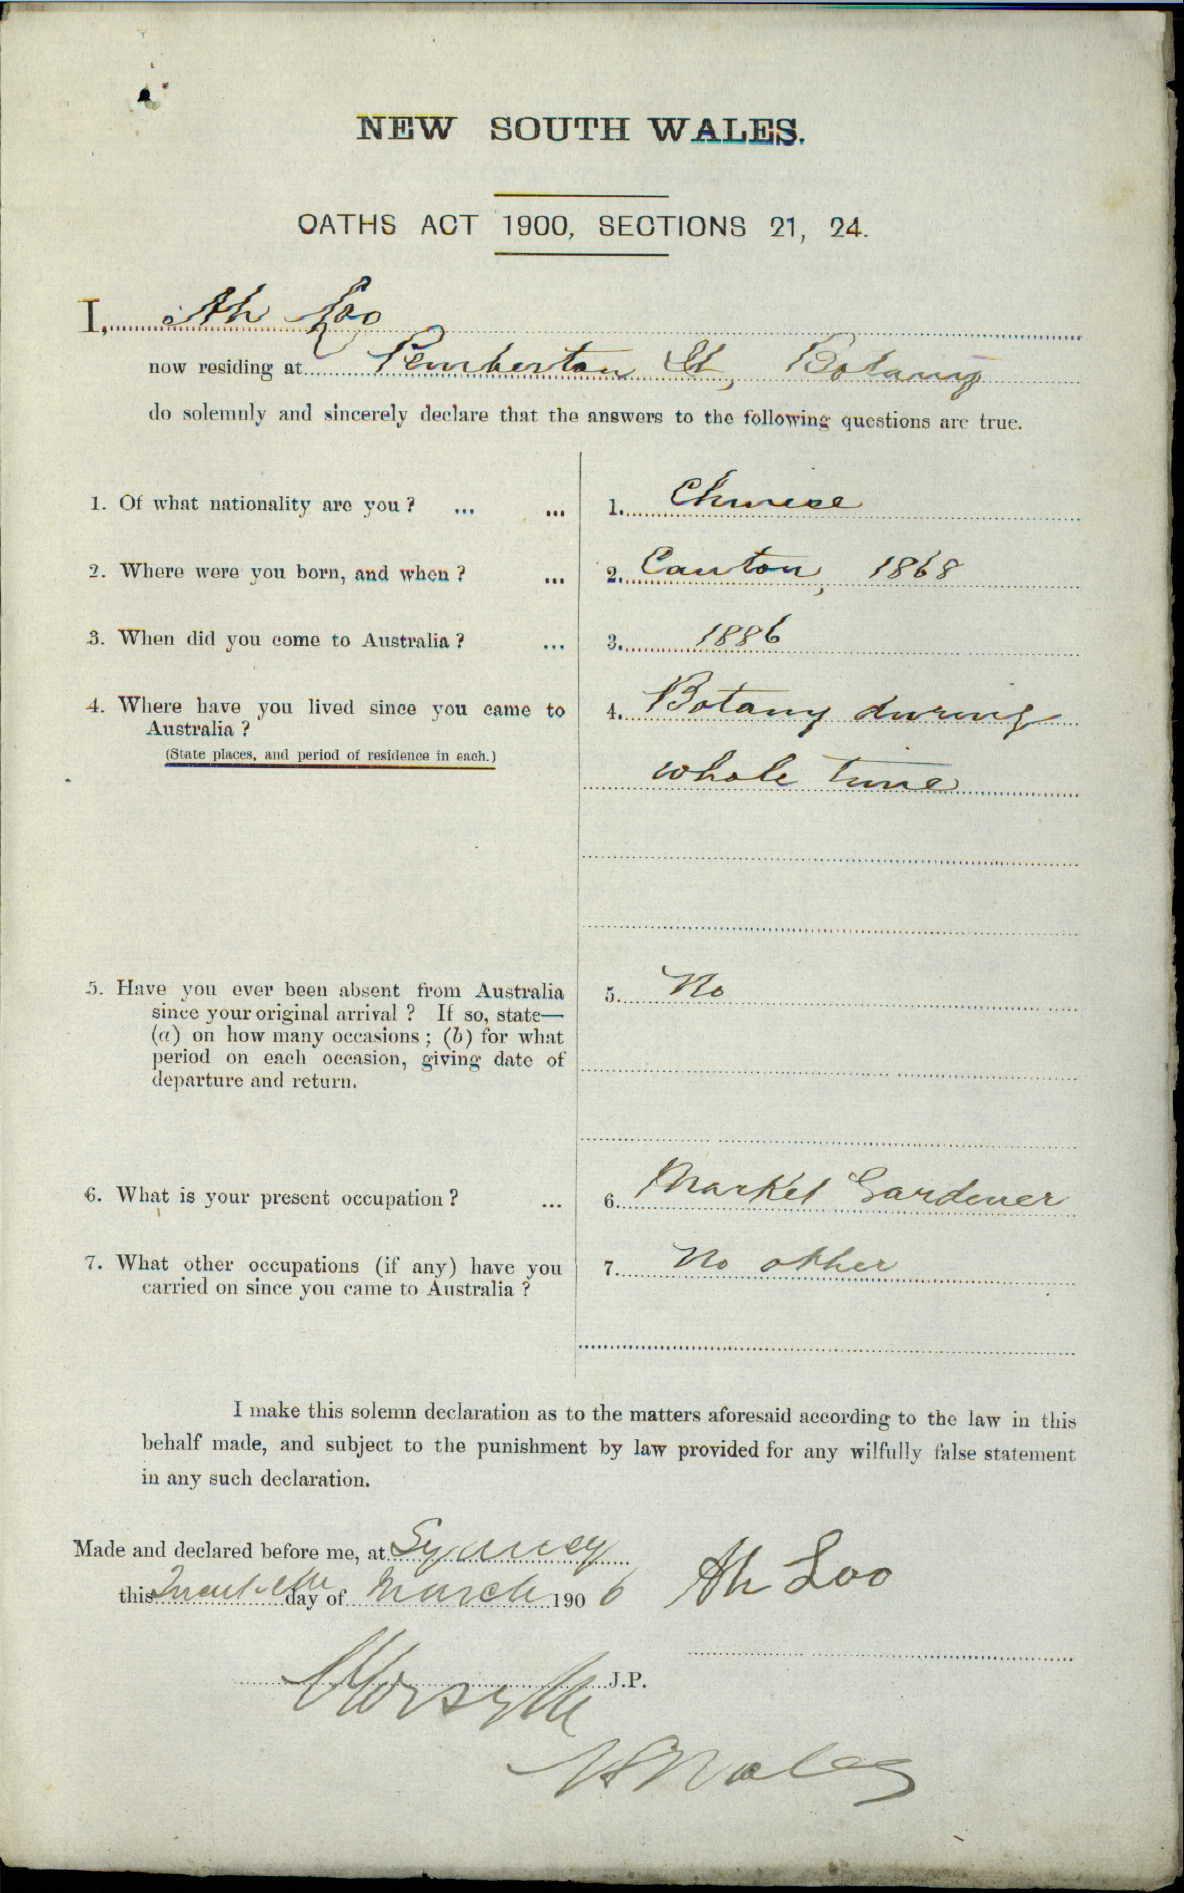 NEW SOUTH WALES.
OATHS ACT 1900, SECTIONS 21, 24.
I, Ah Loo
now residing at Pemberton St, Botany
do solemnly and sincerely declare that the answers to the following questions are true.
1. Of what nationality are you ? ... ... 1. Chinese
2. Where were you born, and when ? ... 2. Canton, 1868
3. When did you come to Australia ? ... 3. 1886
4. Where have you lived since you came to 4. Botany during
Australia ?
(State places, and period of residence in each.)
whole time
5. Have you ever been absent from Australia 5. No
since your original arrival ? If so, state—
(a) on how many occasions ; (b) for what
period on each occasion, giving date of
departure and return.
6. What is your present occupation ? ... 6. Market Gardener
7. What other occupations (if any) have you 7. No other
carried on since you came to Australia ?
I make this solemn declaration as to the matters aforesaid according to the law in this
behalf made, and subject to the punishment by law provided for any wilfully false statement
in any such declaration.
Made and declared before me, at Sydney
this day of March 1906 Ah Loo
J.P.
NSWales